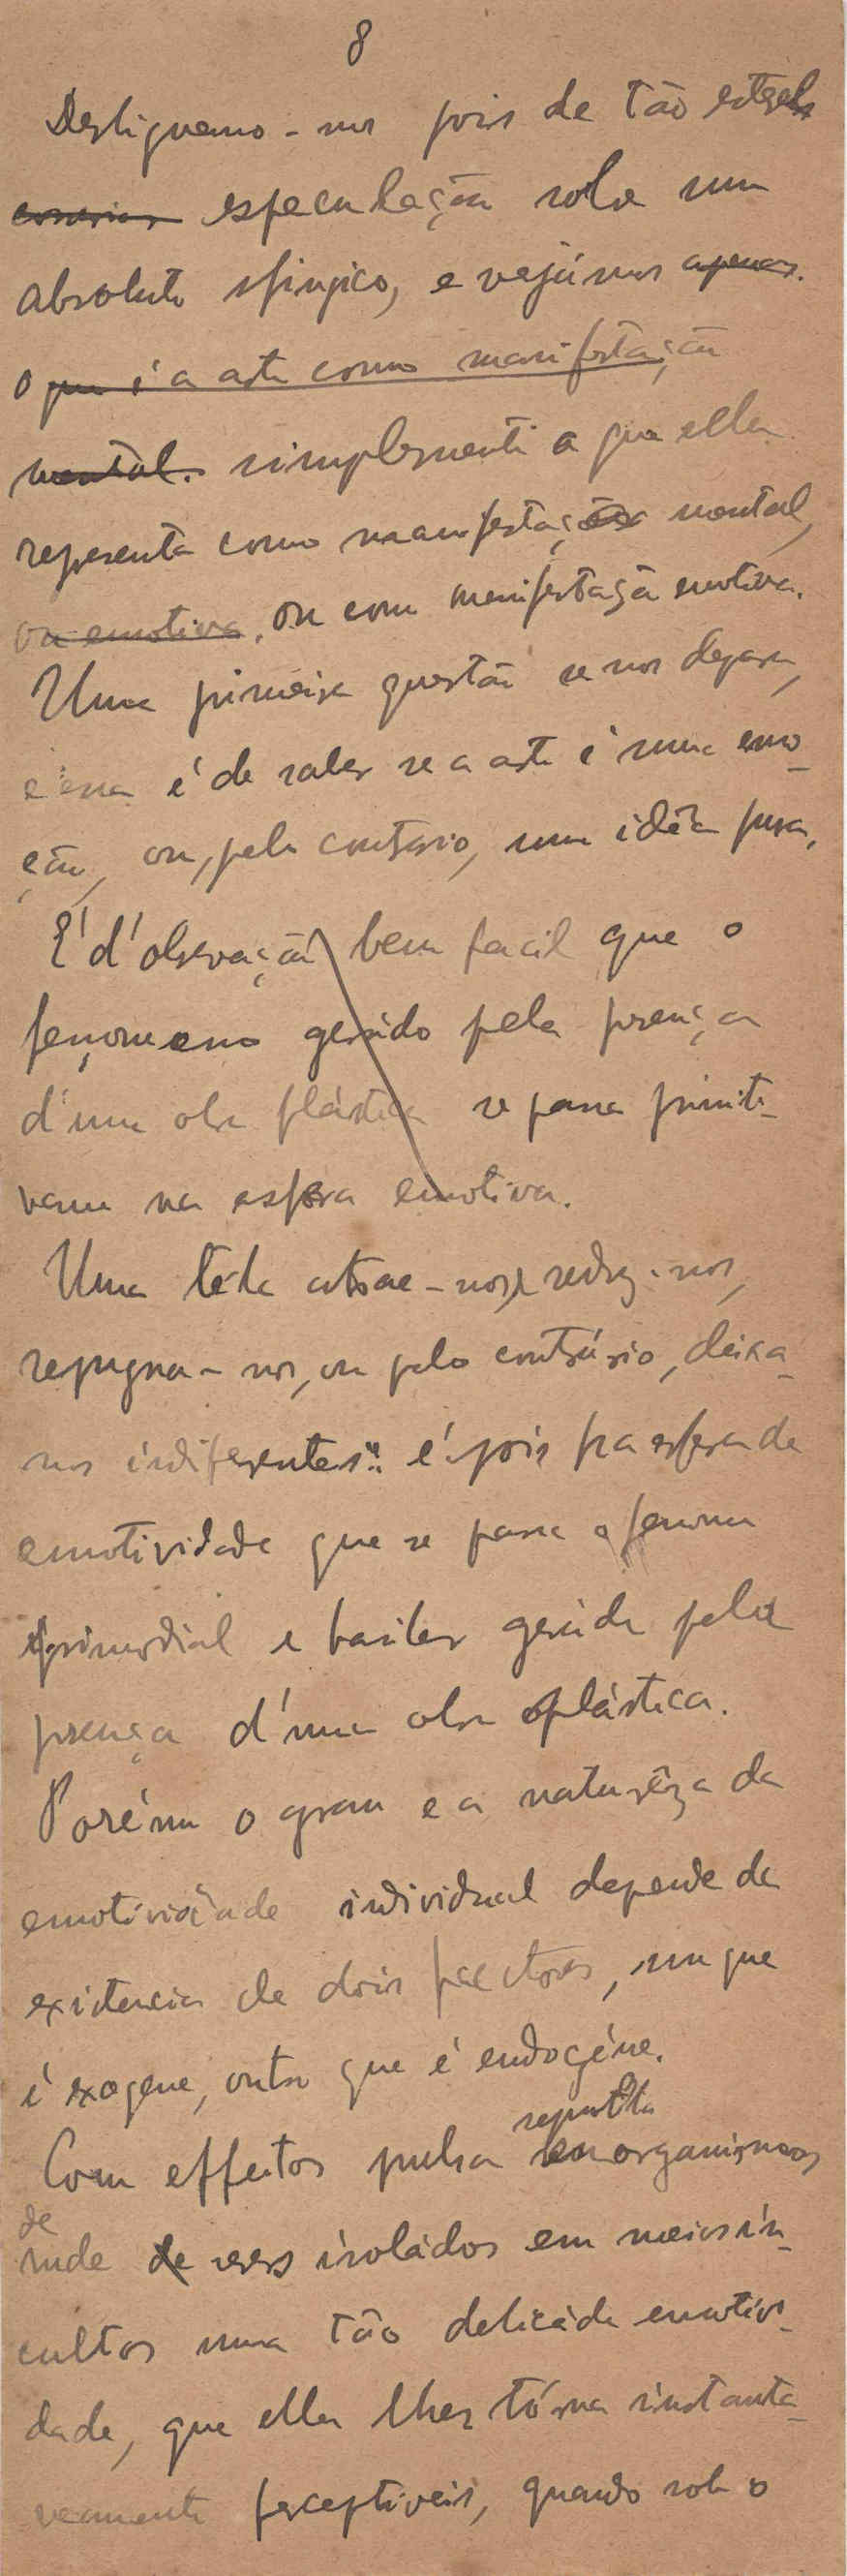 8
Desliguemo-nos pois de tão
especulação sobre um
absoluto sfingico, e vejâmos apenas.
o que é a arte como manifestação
mental. simplesmente o que ella
representa como manifestação mental,
ou emotiva, ou como manifestação emotiva.
Uma primeira questão se nos depara,
e essa é de saber se a arte é uma emo-
ção, ou, pelo contrario, uma idêa pura,
É d'observação bem facil que o
fenomeno gerido pela prença
d'uma obra plástica se passa primiti-
vam na esfera emotiva.
Uma téla atrae-nos, seduz-nos,
repugna-nos, ou pelo contrário, deixa-
nos indiferentes: é pois na esfera da
emotividade que se passa o fenomen
primordial e basilar gerido pela
prença d'uma obra plástica.
Porém o grau e a naturêza da
emotividade individual depende da
existencia de dois factores, um que
é exogene, outro que é endogéne.
repentta
Com effeitos pulsa em organismos
de
rude de seres isoládos em meios in-
cultos uma tão delicáda emotivi-
dade, que ella lhes tórna instanta-
neamente perceptiveis, quando sob o